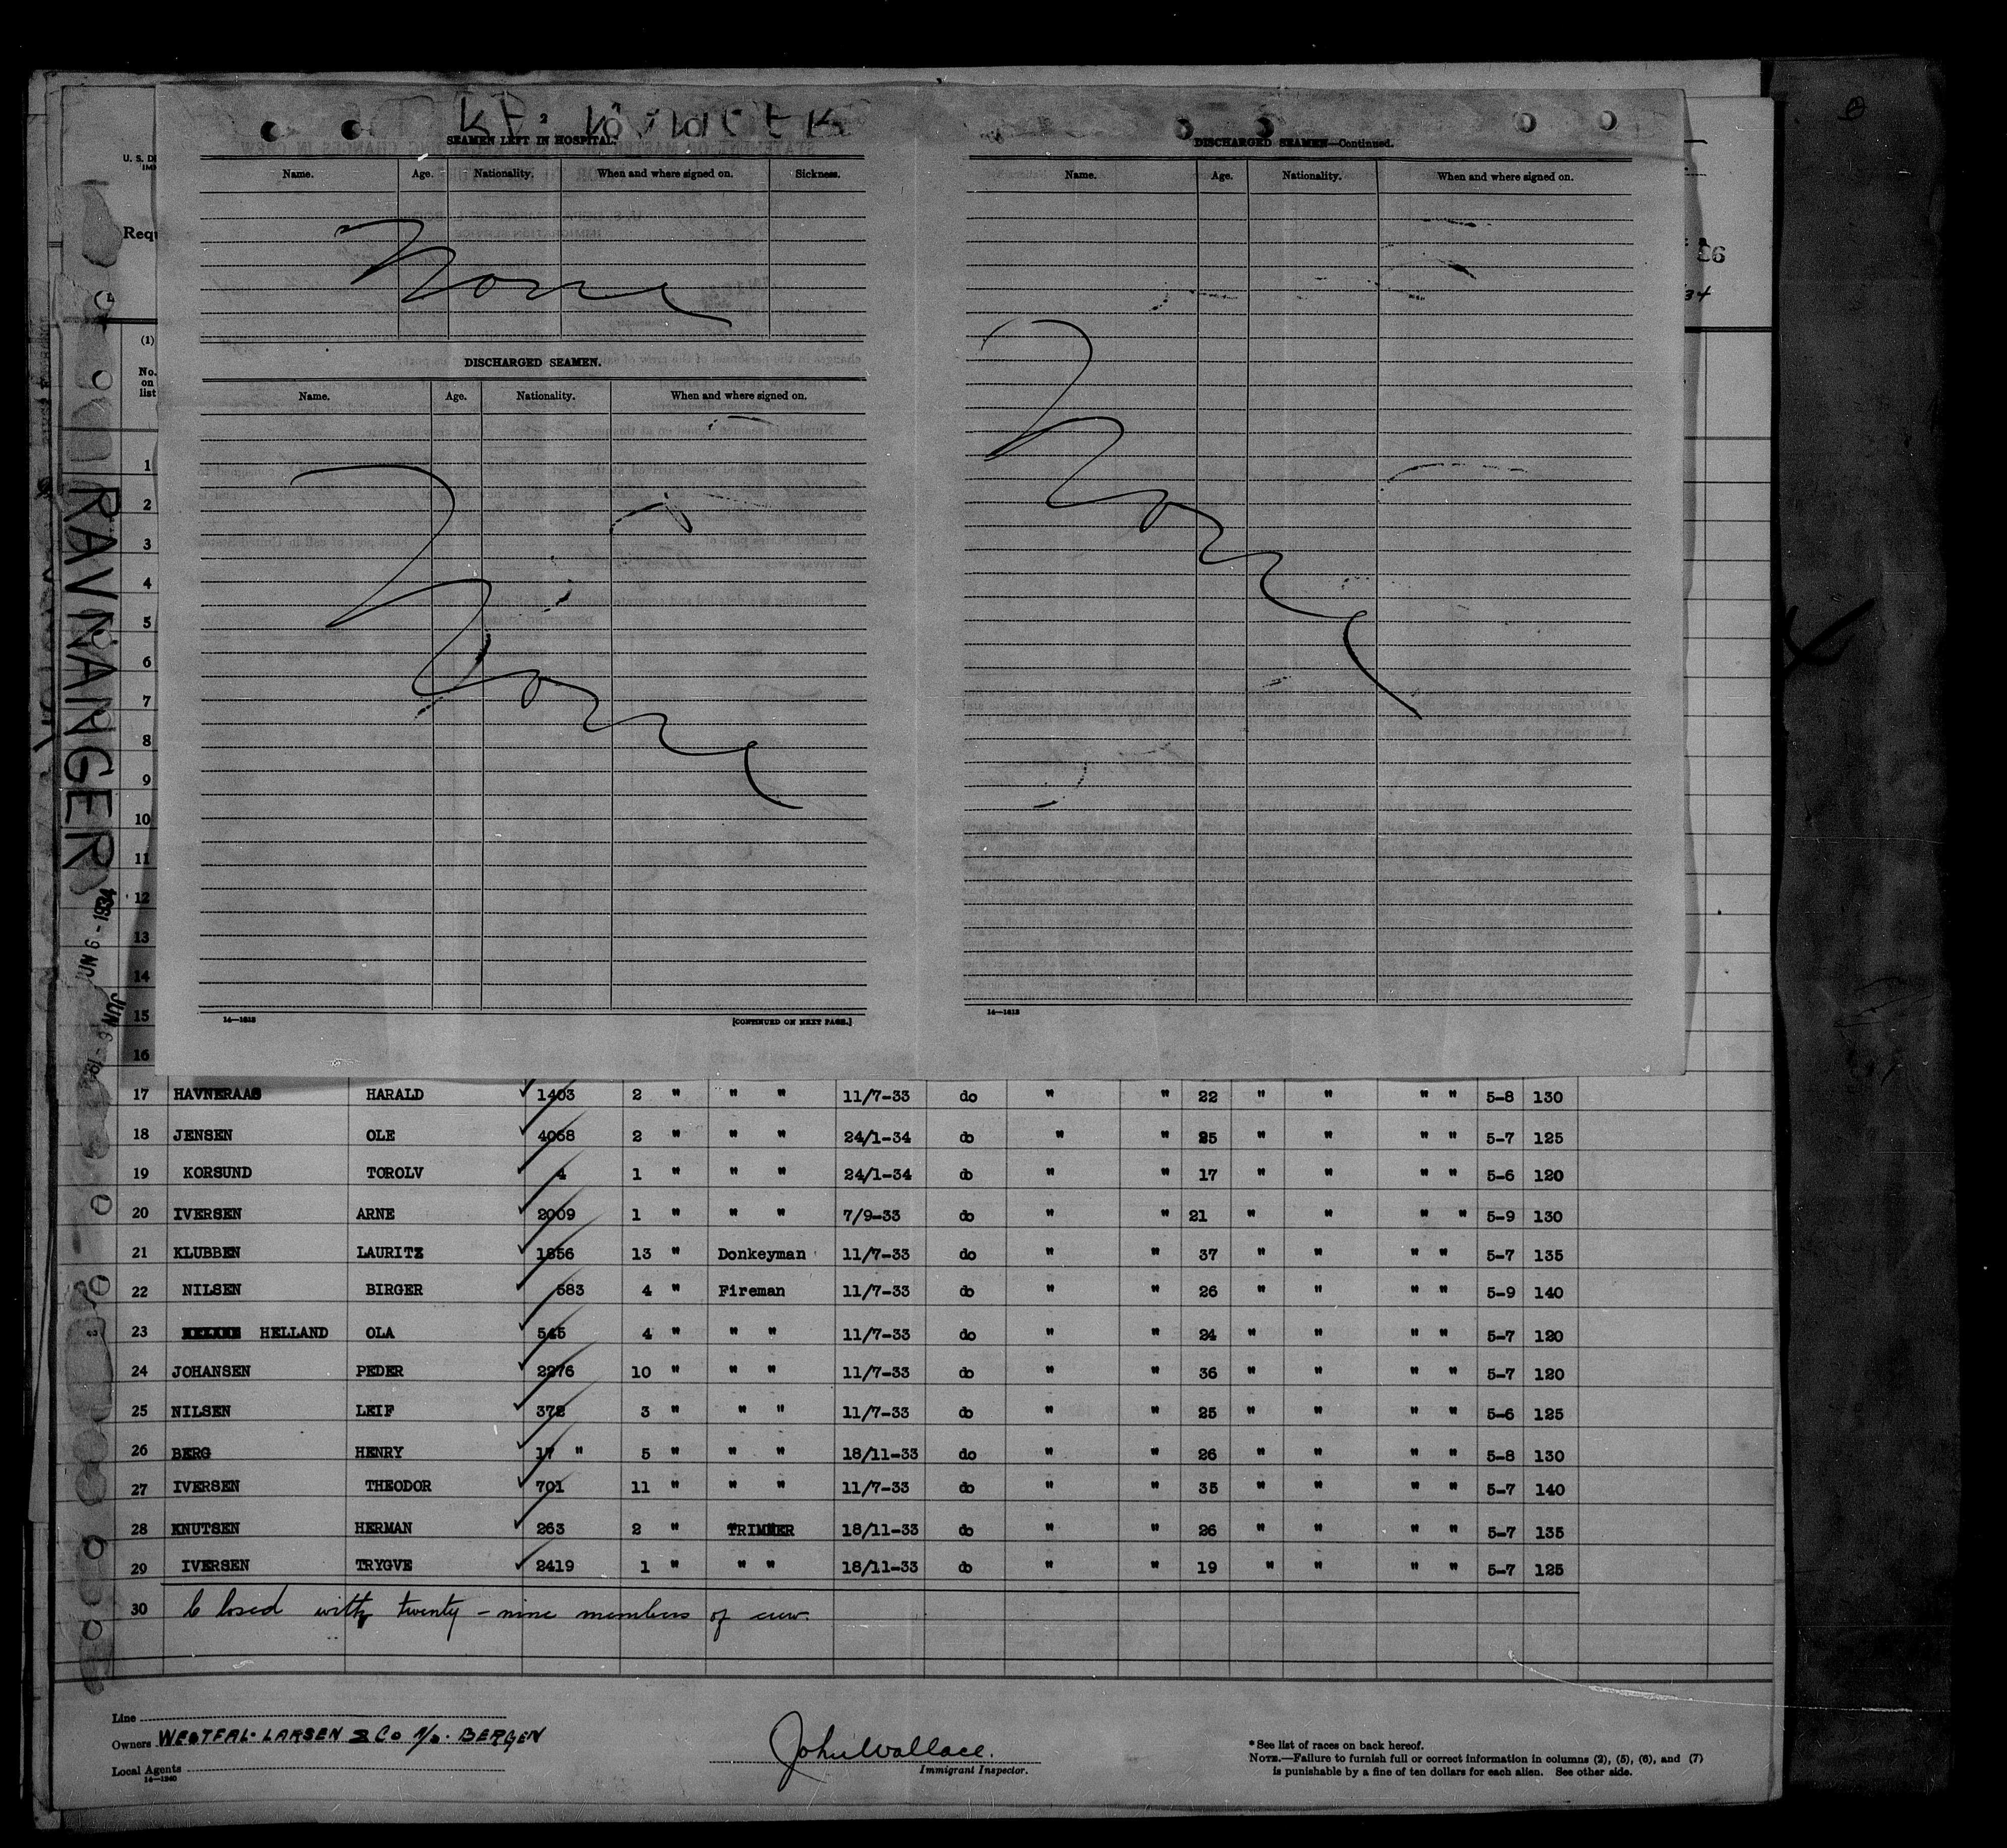 SEAMEN LEFT IN HOSPITAL.
Name. Age. Nationality. When and where signed on. Sickness.
None
DISCHARGED SEAMEN.
Name. Age. Nationality. When and where signed on.
None
14—1613 [CONTINUED ON NEXT PAGE.]
DISCHARGED SEAMEN—Continued.
Name. Age. Nationality. When and where signed on.
None
14—1613
RAVNANGER
JUN 6 - 1934
JUN 6 - 19
U. S. D
Requ
(1)
No.
on
list
1
2
3
4
5
6
7
8
9
10
11
12
13
14
15
16
17 HAVNERAAS HARALD 1403 2 " " " 11/7-33 do " " 22 " " " " 5-8 130
18 JENSEN OLE 4068 2 " " " 24/1-34 do " " 25 " " " " 5-7 125
19 KORSUND TOROLV 4 1 " " " 24/1-34 do " " 17 " " " " 5-6 120
20 IVERSEN ARNE 2009 1 " " " 7/9-33 do " " 21 " " " " 5-9 130
21 KLUBBEN LAURITZ 1856 13 " Donkeyman 11/7-33 do " " 37 " " " " 5-7 135
22 NILSEN BIRGER 583 4 " Fireman 11/7-33 do " " 26 " " " " 5-9 140
23 HELLAND OLA 545 4 " " " 11/7-33 do " " 24 " " " " 5-7 120
24 JOHANSEN PEDER 2276 10 " " " 11/7-33 do " " 36 " " " " 5-7 120
25 NILSEN LEIF 372 3 " " " 11/7-33 do " " 25 " " " " 5-6 125
26 BERG HENRY 17 " 5 " " " 18/11-33 do " " 26 " " " " 5-8 130
27 IVERSEN THEODOR 701 11 " " " 11/7-33 do " " 35 " " " " 5-7 140
28 KNUTSEN HERMAN 263 2 " TRIMMER 18/11-33 do " " 26 " " " " 5-7 135
29 IVERSEN TRYGVE 2419 1 " " " 18/11-33 do " " 19 " " " " 5-7 125
30 Closed with twenty-nine members of crew.
Line
Owners WESTFAL-LARSEN & Co A/S. BERGEN
Local Agents
14—1240
John Wallace.
Immigrant Inspector.
* See list of races on back hereof.
NOTE.—Failure to furnish full or correct information in columns (2), (5), (6), and (7)
is punishable by a fine of ten dollars for each alien. See other side.